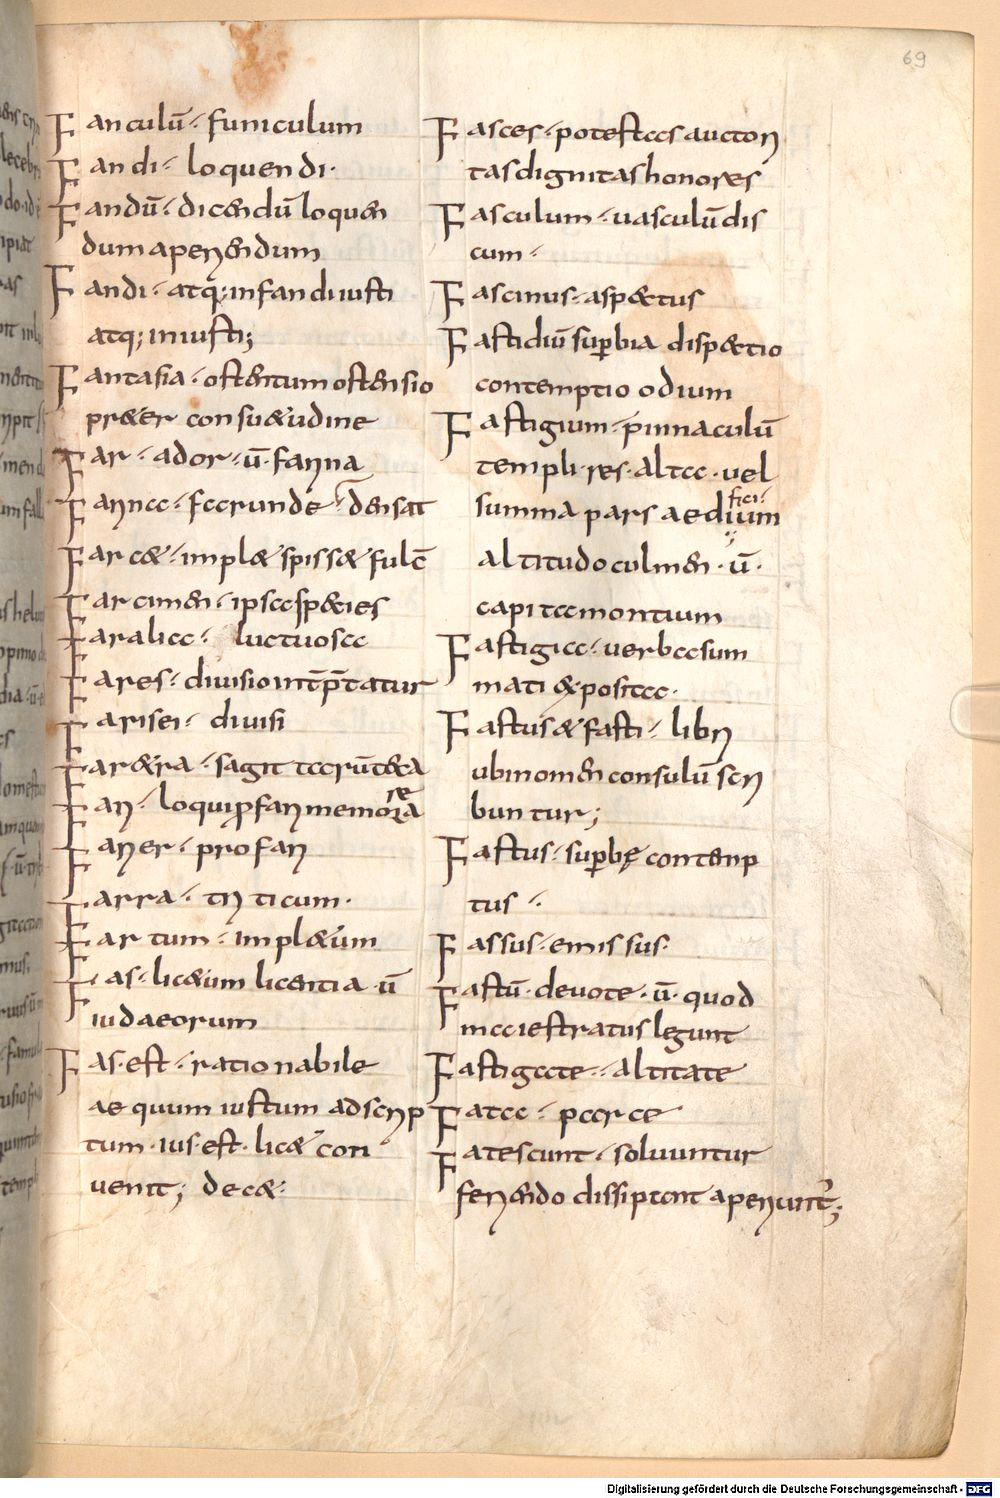 69
Fanculū· funiculum
Fandi· loquendi·
Fandū· dicendū loquen
dum aperiendum
Fandi· atq; infandi iusti
atq; iniusti;
Fantasia· ostentum ostensio
pr&er consu&udine
Far· ador· ū· farina
Farica· facunde· densat
Farc&· impl& spiss& fulc̄
Farcimen· ipsa sp&ies
Faralia· luctuosa
Fares· divisio int̄p̄tatur
Farisei· divisi
Far&ra· sagittarū teca
Fari· loqui profari memorare
Farier· profari
Farra· triticum·
Fartum· impl&um
Fas· lic&um licentia ū
iudaeorum
Fas· est· rationabile
aequum iustum adscrip
tum· ius· est· lic& con
uenit; dec&·
Fasces· potestas auctori
tas dignitas honores
Fasculum· uasculū dis
cum·
Fascinus· asp&tus
Fastidiū superbia disp&tio
contemptio odium
Fastigium· pinnaculū
templi· res· alta· uel
summa pars aedificiium
altitudo culmen· ū·
capita montium
Fastigia· uerba sum
mati & posita·
Fastus & fasti· libri
ubi nomen consulū scri
buntur;
Fastus· superbę contenp
tus·
Fassus· emissus·
Fastū· deuote· ū· quod
magestratus legunt
Fastigate· altitate
Fata· parce
Fatescunt· soluuntur
feriendo dissipant aperiunt;
Digitalisierung gefördert durch die Deutsche Forschungsgemeinschaft - DFG